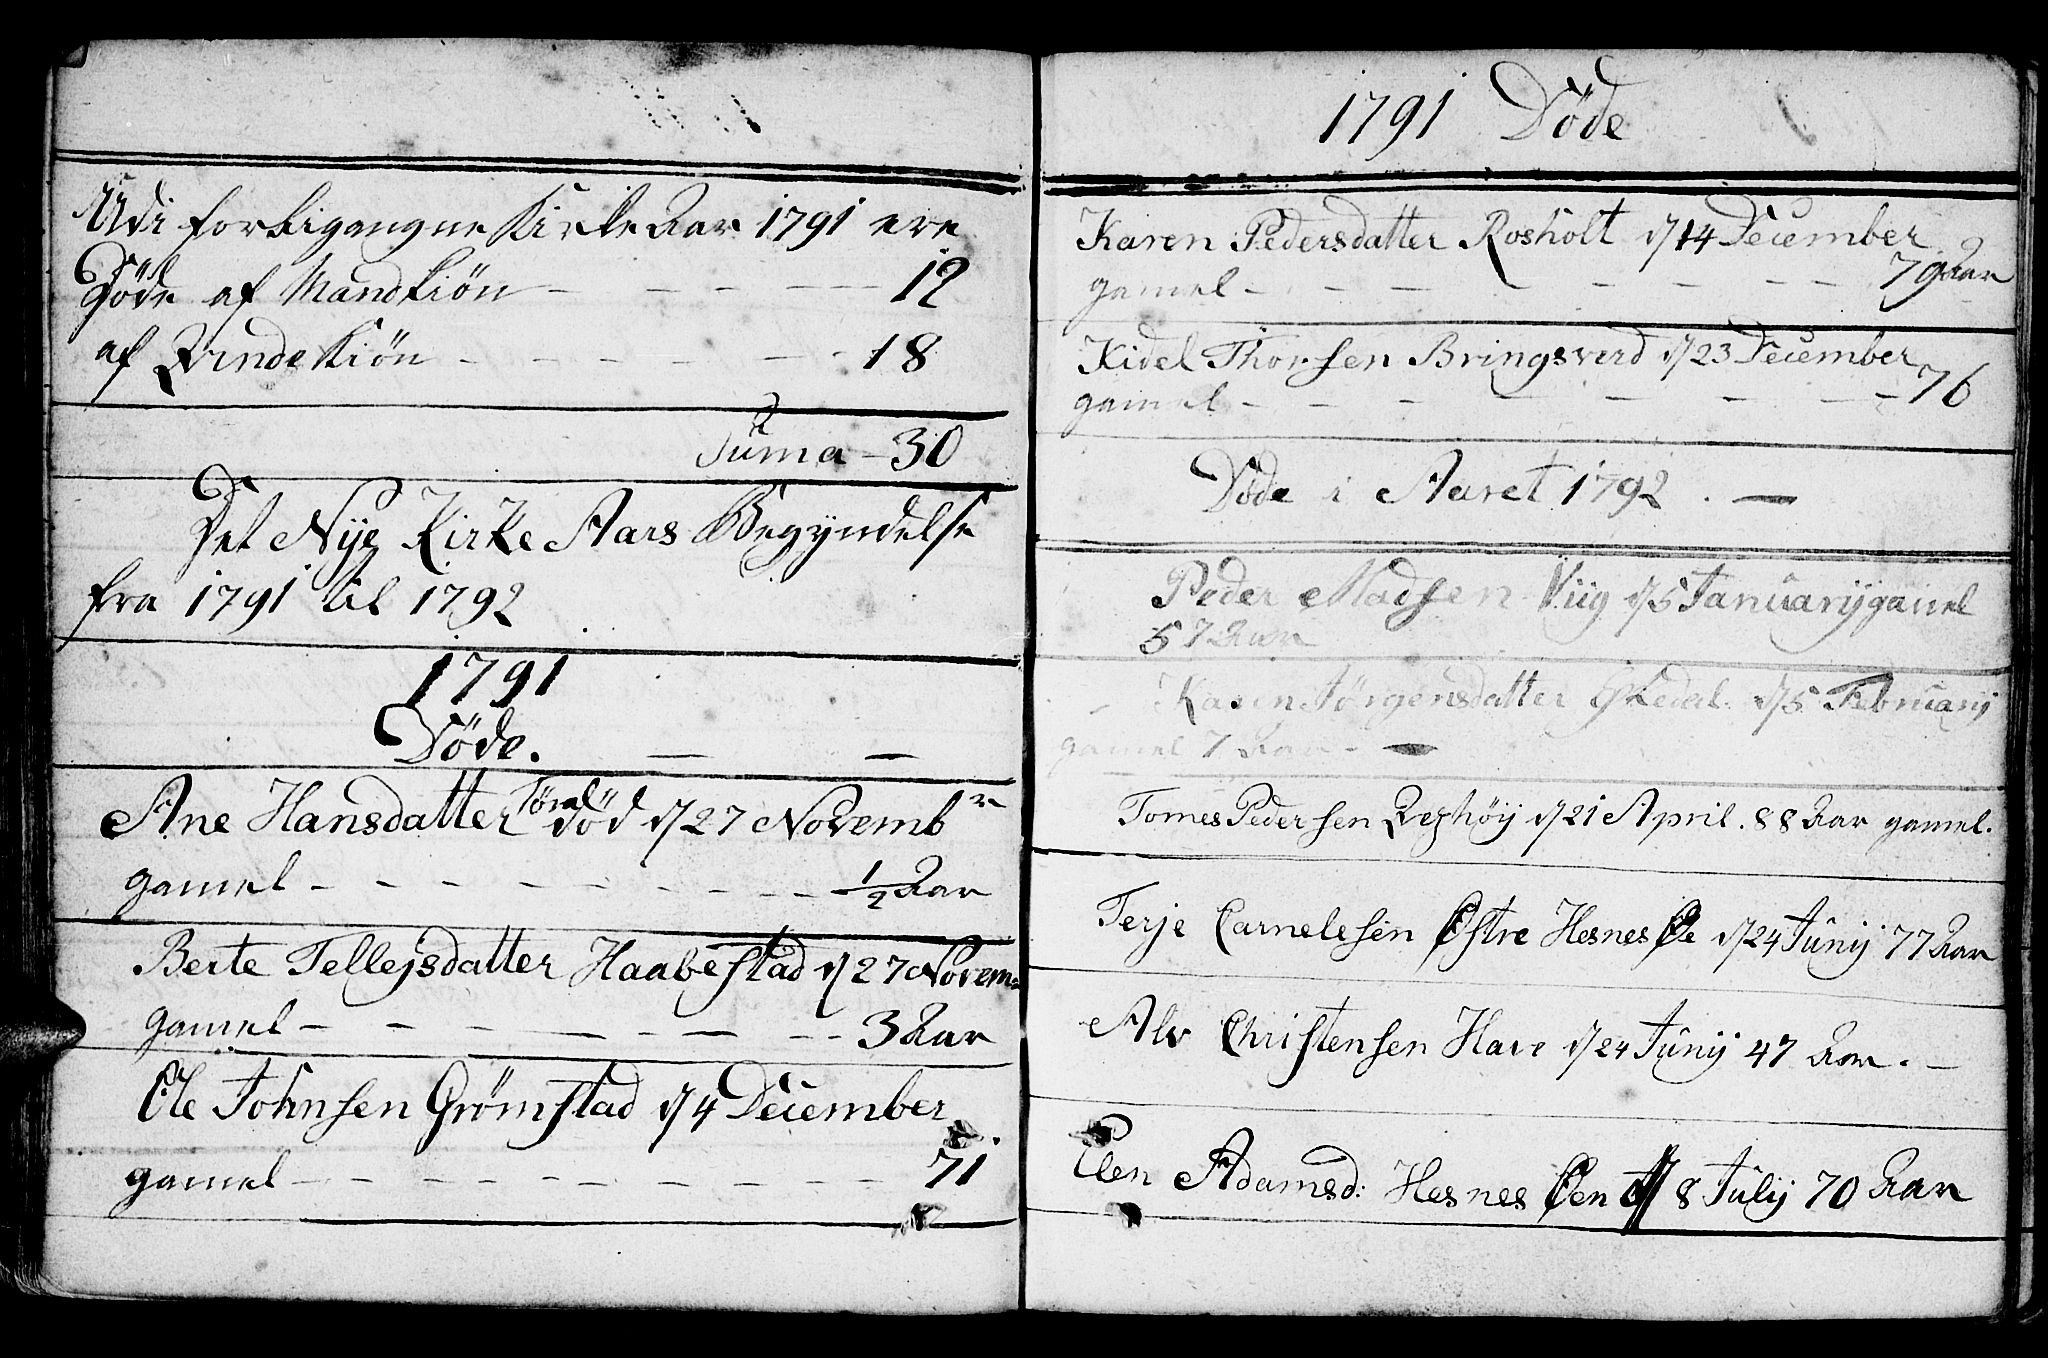 Udi forbigangne Kirke Aar 1791 ere
Døde af Mandkiøn - - - - 12
af Qvindekiøn - - - - - - 18
Suma - 30
Det Nye Kirke Aars Begyndelse
fra 1791 til 1792
1791
Døde. — —
Ane Hansdatter Tøra død d/27 Novemb r
gamel - - - - - - - - - 1/2 Aar
Berte Tellejsdatter Haabestad d/27 Novem=
gamel - - - - - - - 3 Aar
Ole Johnsen Grømstad d/4 December
gamel - - - - - - - - - 71.
1791 Døde
Karen Pedersdatter Rosholt d/14 December
gamel - - - - - - - - 79 Aar
Kidel Thorsen Bringsverd d/23 December
gamel - - - - - - - - 76
Døde i Aaret 1792. —
Peder Madsen Viig d/5 Januarij gamel
57 Aar
Karen Jørgensdatter d/5 Februarij
gamel 7 Aar - —
Tomes Pedersen d/21 April. 88 Aar gamel.
Terje Carnelesen Østre Hesnes Øe d/24 Junij 77 Aar
Alv Christensen Have d/24 Junij 47 Aar. —
Elen Adamsd: Hesnes Øen d/8 Julij 70 Aar